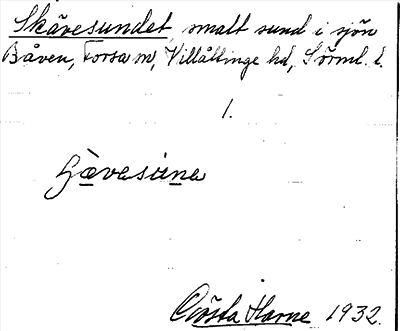 Skävesundet, smalt sund i sjön
Båven, Forsa m, Villåttinge hd, Sörml. l.
1.
Gösta Harne 1932.